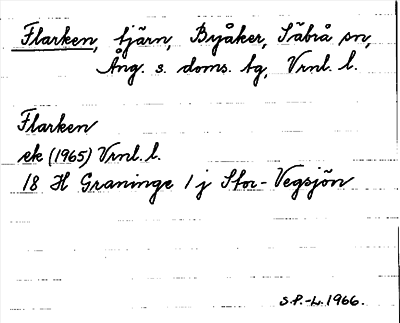 Flarken, tjärn, Byåker, Säbrå sn,
Ång. s. doms. tg, Vrnl. l.
Flarken
ek (1965) Vrnl. l.
18 H Graninge 1 j Stor-Vegsjön
S.P.-L. 1966.